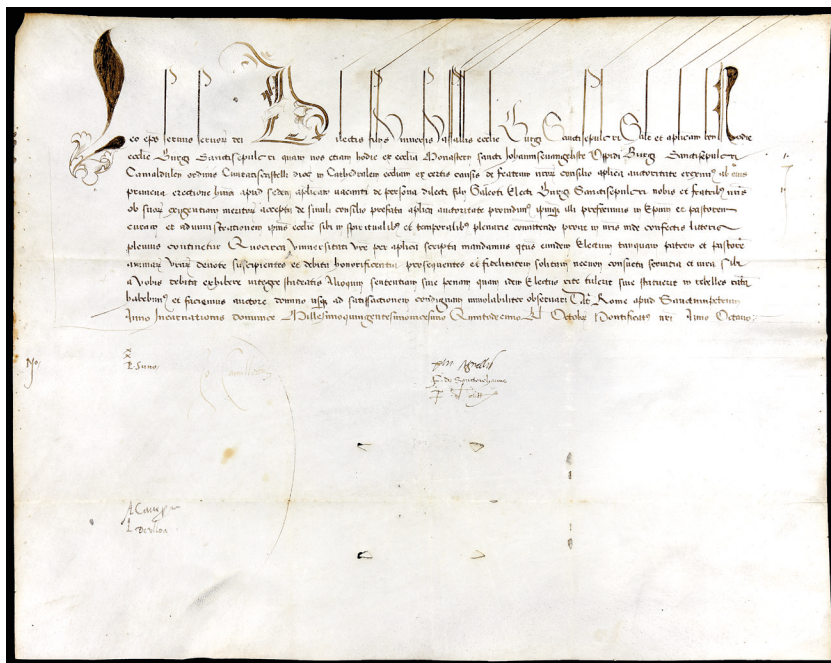 Leo eps servus servor dei Dilectis filiis universis vassallis ecclie Burgi Sanctisepulcri Salt et aplicam ben Hodie
ecclie Burgi Sanctisepulcri quam nos etiam hodie ex ecclia Monasterij sancti Johannisevangeliste Oppidi Burgi Sanctisepulcri
Camaldulen ordinis Civitatiscastelli dioc in Cathedralem eccliam ex certis causis de fratrum nrorum consilio aplica auctoritate ereximus ab eius
primeva erectione huiusmodi apud sedem aplicam vacanti de persona dilecti filij Galeoti Electi Burgi Sanctisepulcri nobis et fratribus nris
ob suorum exigentiam meritorum accepta de simili consilio prefata aplica auctoritate providimus ipsumque illi prefecimus in Epum et pastorem
curam et administrationem ipsius ecclie sibi in spiritualibus et temporalibus plenarie committendo prout in nris inde confectis litteris
plenius continetur Quocirca Universitati Vre per aplica scripta mandamus qtus eundem Electum tanquam patrem et pastorem
animarum Vrarum devote suscipientes et debita honorificentia prosequentes ei fidelitatem solitam necnon consueta servitia et iura sibi
a Vobis debita exhibere integre studeatis Alioquin sententiam sive penam quam idem Electus rite tulerit sive statuerit in rebelles ratam
habebimus et faciemus auctore domino usque ad satisfactionem condignam inviolabiliter observari Dat Rome apud Sanctumpetrum
Anno Incarnationis dominice Millesimoquingentesimovicesimo Quintodecimo Kl Octobr Pontificatus nri Anno Octavo